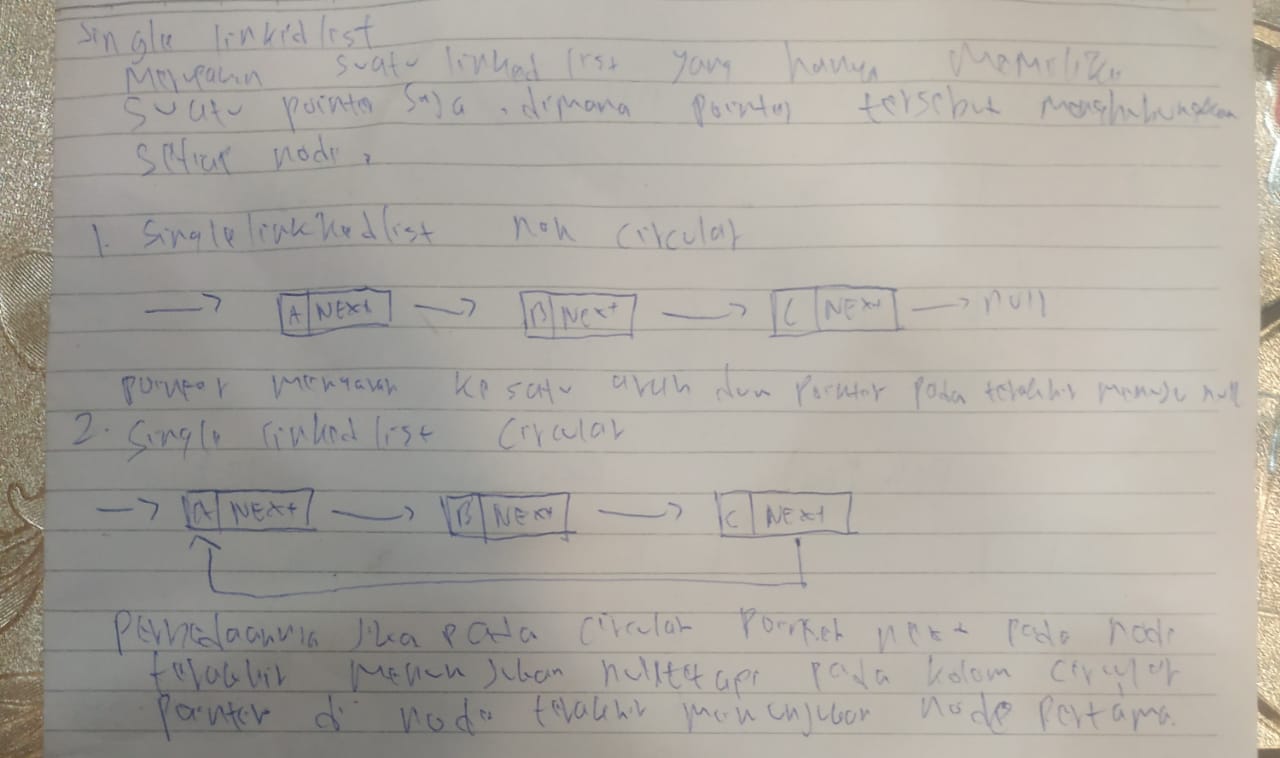 Single linkedlist
Merupakan suatu linked list yang hanya memiliki
suatu pointer saja, dimana pointer tersebut menghubungkan
setiap node,
1. Single linkkedlist non circular
→ A NEXt → B NEXt → C NEXt → null
pointer mengarah ke satu arah dan pointer pada terakhir menuju null
2. Single linked list circular
→ A NEXt → B NEXt → C NEXt
Perbedaannya jika pada circular pointer next pada node
terakhir menunjukan null tetapi pada kolom circular
pointer di node terakhir menunjukan node pertama.